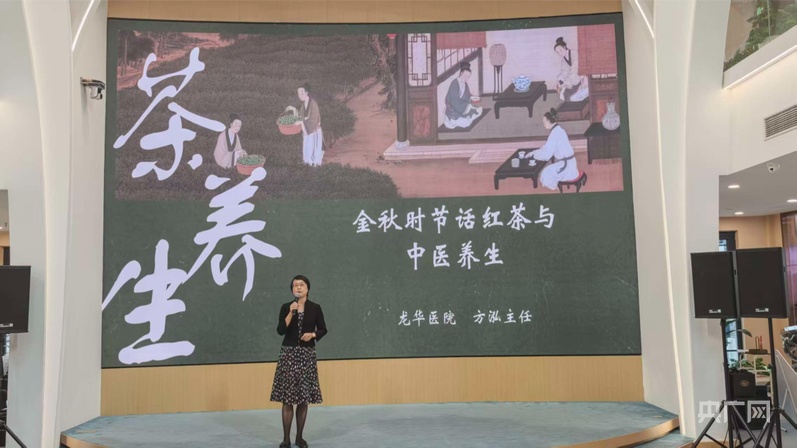 茶养生
金秋时节话红茶与
中医养生
龙华医院 方泓主任
央广网